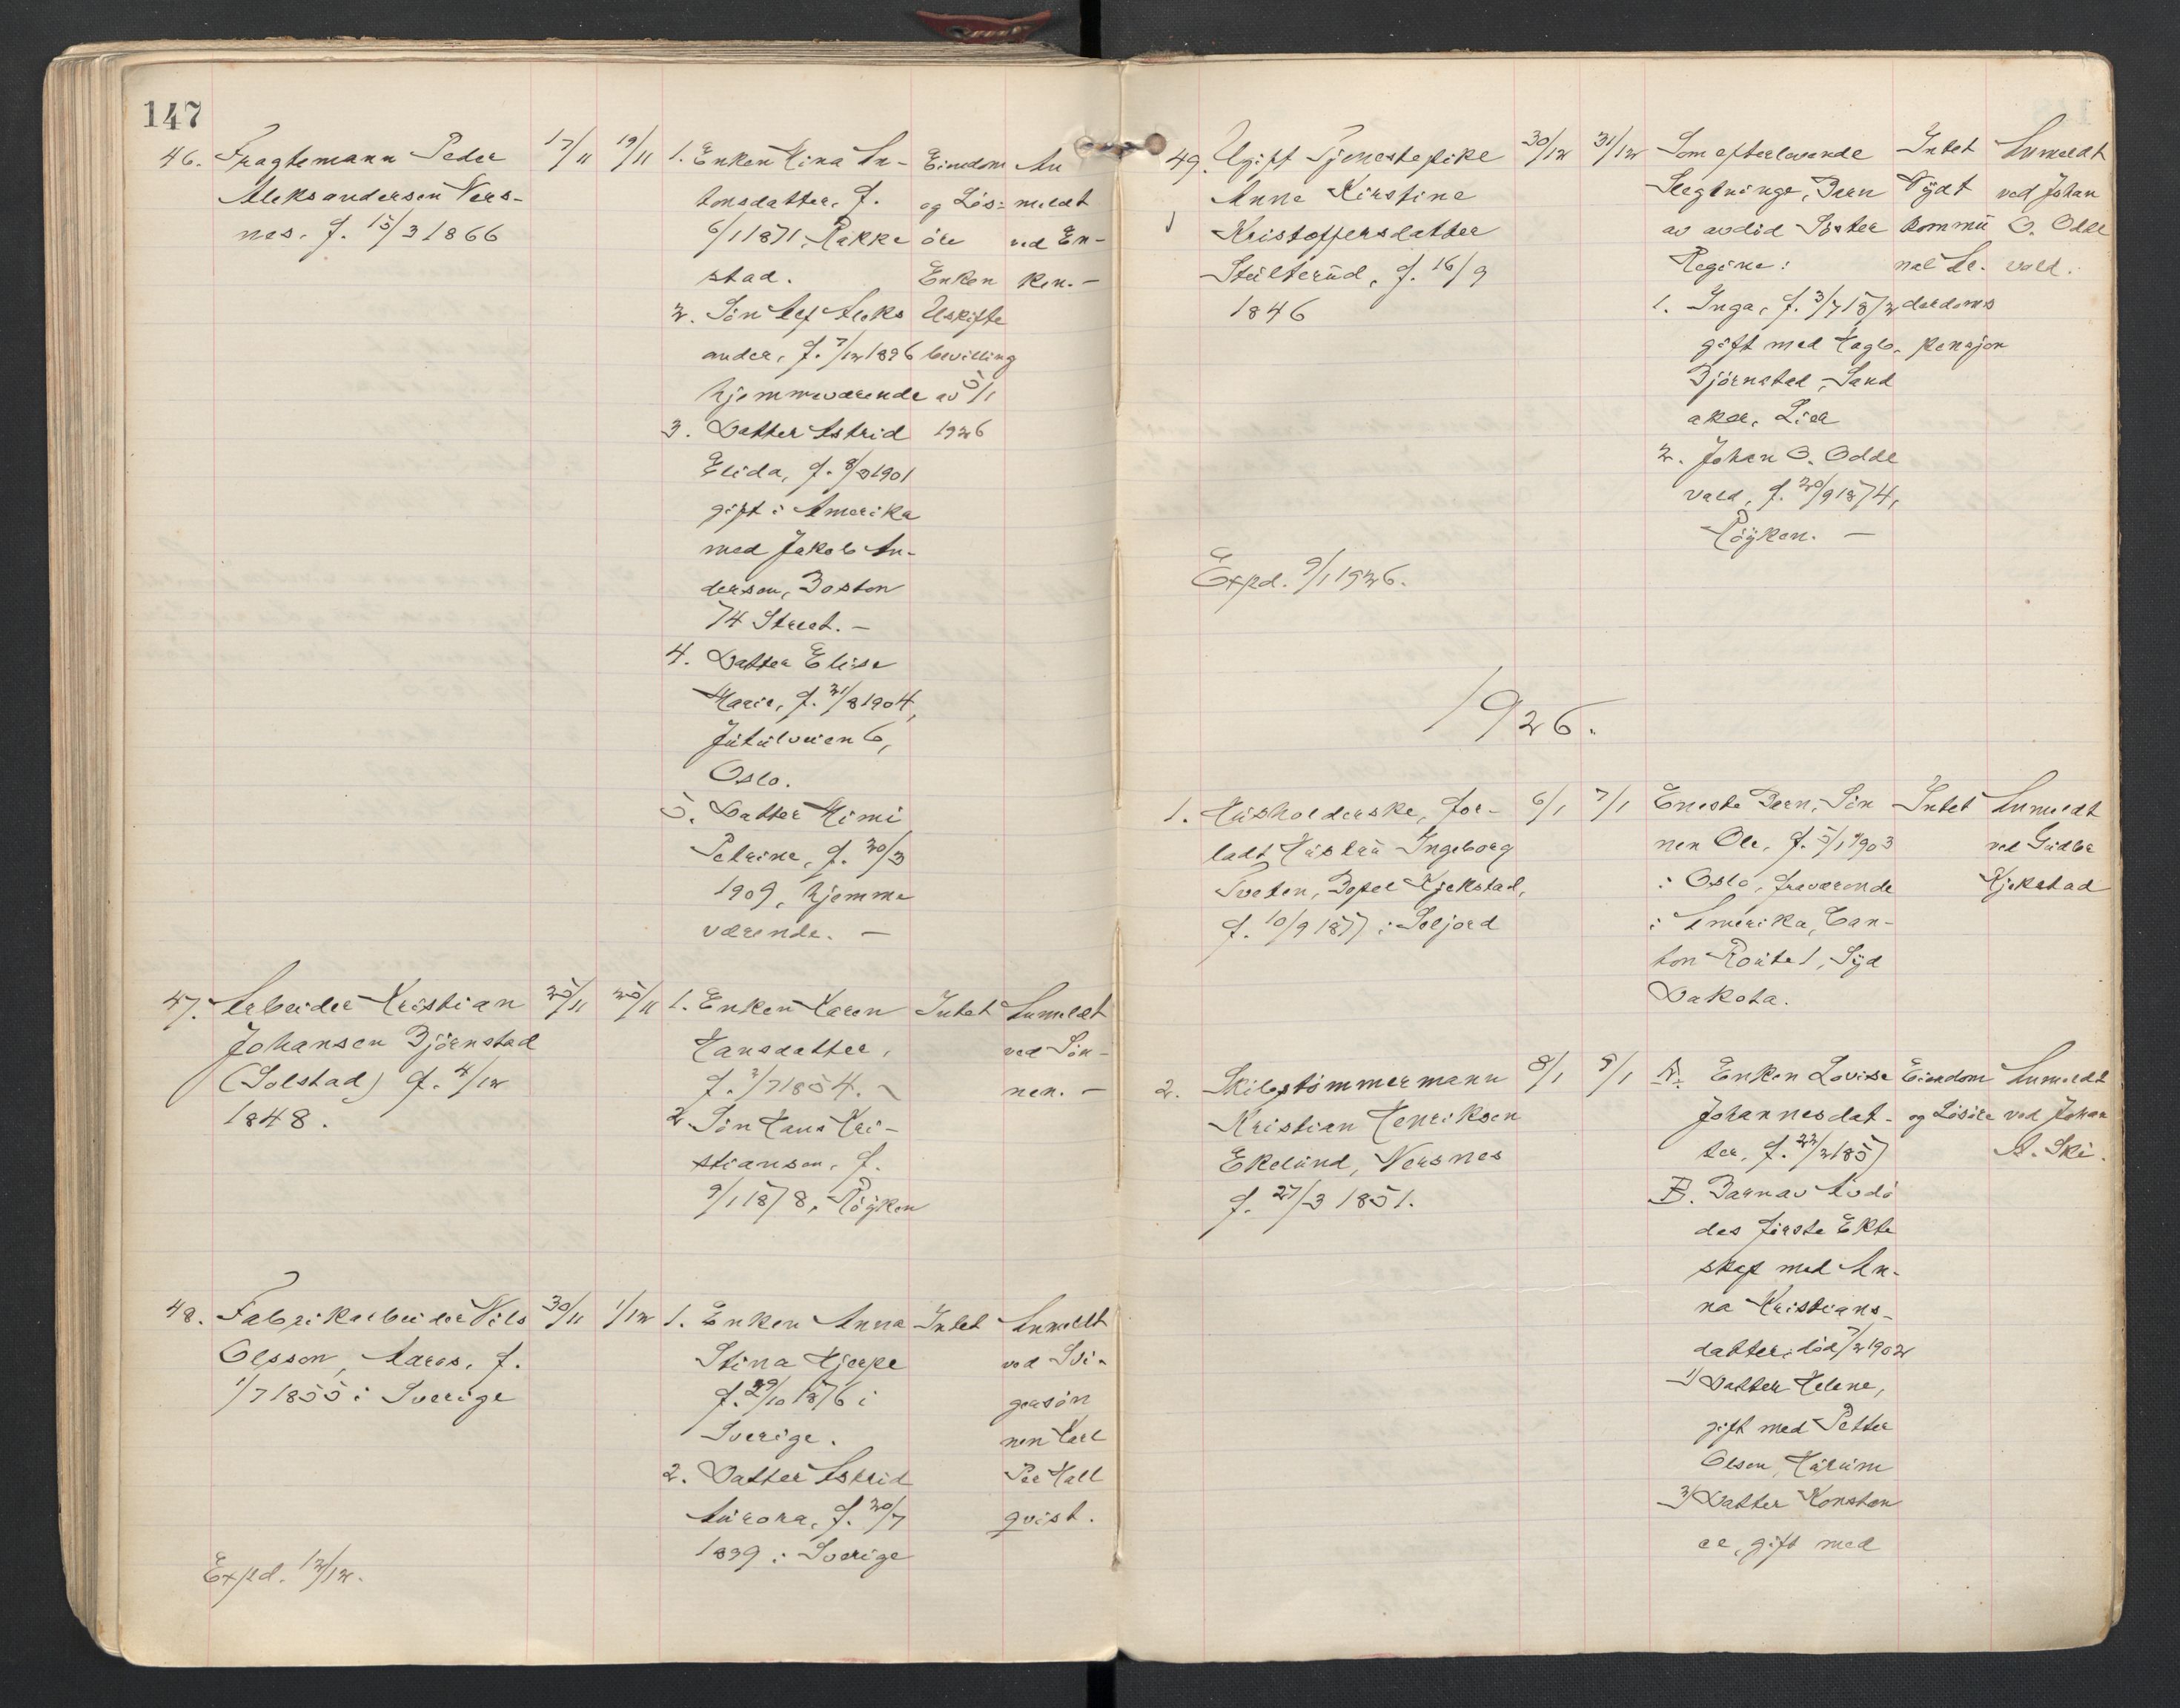 147
46. Fragtemann Peder
Aleksandersen Ners-
nes. f. 15/3 1866
17/11
19/11
1. Enken Mina An-
tonsdatter, f.
6/1 1871, Rakke
stad.
2. Sön Alf Aleks
ander, f. 7/12 1896
hjemmeværende
3. Datter Astrid
Elida, f. 8/3 1901
gift i Amerika
med Jakob An-
derson, Boston
74 Street. —
4. Datter Elise
Marie, f. 21/8 1904,
Jutulveien 6,
Oslo.
5. Datter Mimi
Petrine, f. 30/3
1909, hjemme
værende. —
Eiendom
og Lös-
öre
Enken
Uskifte
bevilling
av 5/1
1926
An
meldt
ved En-
ken. —
47. Arbeider Kristian
Johansen Björnstad
(Solstad) f. 4/12
1848.
25/11
25/11
1. Enken Karen
Hansdatter,
f. 2/7 1854. —
2. Sön Hans Kri-
stiansen, f.
9/1 1878, Röyken
Intet
Anmeldt
ved Sön-
nen. —
48. Fabrikarbeider Nils
Olsson, Aaros, f.
1/7 1855 i Sverige
30/11
1/12
1. Enken Anna
Stina Hjerpe
f. 29/10 1876 i
Sverige.
2. Datter Astrid
Aurora, f. 20/7
1899 i Sverige
Intet
Anmeldt
ved Svi-
gersön
nen Karl
Per Hall
qvist.
Expd. 12/12.
49. Ugift Tjenestepike
Anne Kirstine
Kristoffersdatter
Stulterud, f. 16/9
1846
30/12
31/12
Som efterlevende
Slegtninge, Barn
av avdöd Söster
Regine:
1. Inga, f. 3/7 1872
gift med Hagb.
Björnstad, Sand
aker, Lier
2. Johan O. Odde
vald, f. 20/9 1874,
Röyken. —
Intet
Nydt
kommu
nal Al-
derdoms
pensjon
Anmeldt
ved Johan
O. Odde
vald.
Expd. 9/1 1926.
1926.
1. Husholderske, for-
ladt Hustru Ingeborg
Tveten, Bopel Kjekstad,
f. 10/9 1877 i Seljord
6/1
7/1
Eneste Barn, Sön
nen Ole, f. 5/1 1903
i Oslo, fraværende
i Amerika, Can-
ton Route 1, Syd
Dakota.
Intet
Anmeldt
ved Gudbr
Kjekstad
2. Skibstömmermann
Kristian Henriksen
Ekelund, Nersnes
f. 27/3 1851.
8/1
9/1
A. Enken Lovise
Johannesdat-
ter, f. 22/2 1857
B. Barn av Avdö
des förste Ekte
skap med An-
na Kristians-
datter, död 7/2 1902
1) Datter Helene,
gift med Petter
Olsen, Hurum
2) Datter Konstan
ce, gift med
Eiendom
og Lösöre
Anmeldt
ved Johan
A. Ski.